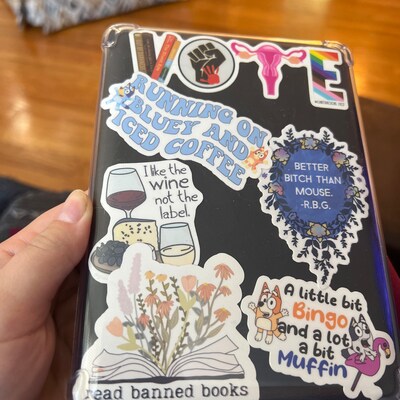 VOTE
RUNNING ON
BLUEY AND
ICED COFFEE
I like the
wine
not the
label.
BETTER
BITCH THAN
MOUSE.
-R.B.G.
A little bit
Bingo
and a lot
a bit
Muffin
read banned books